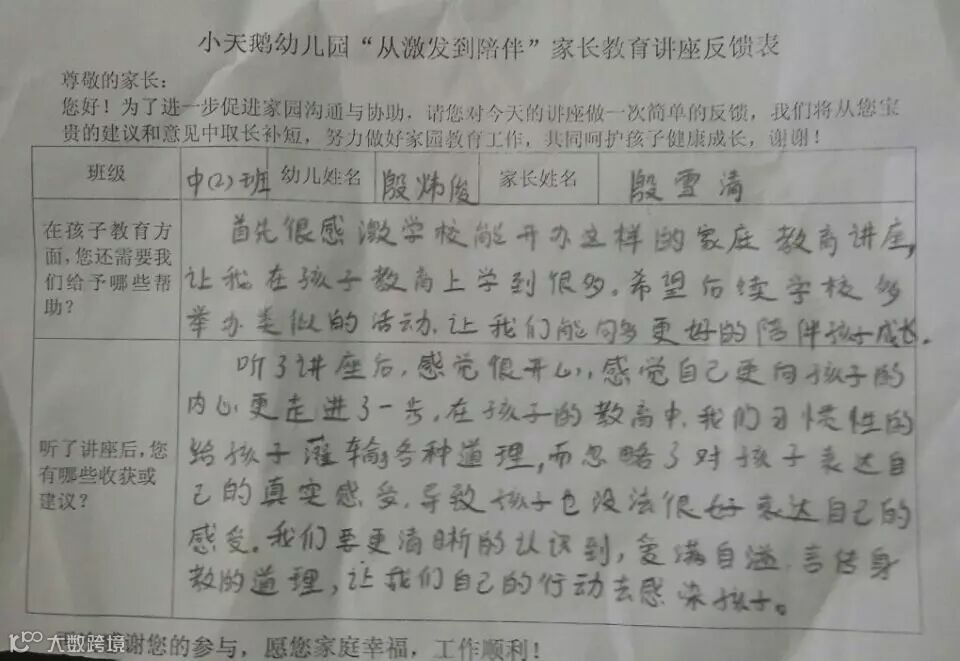 小天鹅幼儿园“从激发到陪伴”家长教育讲座反馈表
尊敬的家长：
您好！为了进一步促进家园沟通与协助，请您对今天的讲座做一次简单的反馈，我们将从您宝
贵的建议和意见中取长补短，努力做好家园教育工作，共同呵护孩子健康成长，谢谢！
班级 中(2)班 幼儿姓名 殷炜俊 家长姓名 殷雪清
在孩子教育方
面，您还需要我
们给予哪些帮
助？
首先很感激学校能开办这样的家庭教育讲座，
让我在孩子教育上学到很多。希望后续学校多
举办类似的活动，让我们能够更好的陪伴孩子成长。
听了讲座后，您
有哪些收获或
建议？
听了讲座后，感觉很开心，感觉自己更向孩子的
内心更走进了一步。在孩子的教育中，我们习惯性的
给孩子灌输各种道理，而忽略了对孩子表达自
己的真实感受，导致孩子也没法很好表达自己的
感受。我们要更清晰的认识到，爱满自溢，言传身
教的道理，让我们自己的行动去感染孩子。
谢您的参与，愿您家庭幸福，工作顺利！
大数跨境